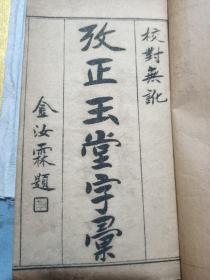 校對無訛
攷正玉堂字彙
金汝霖題